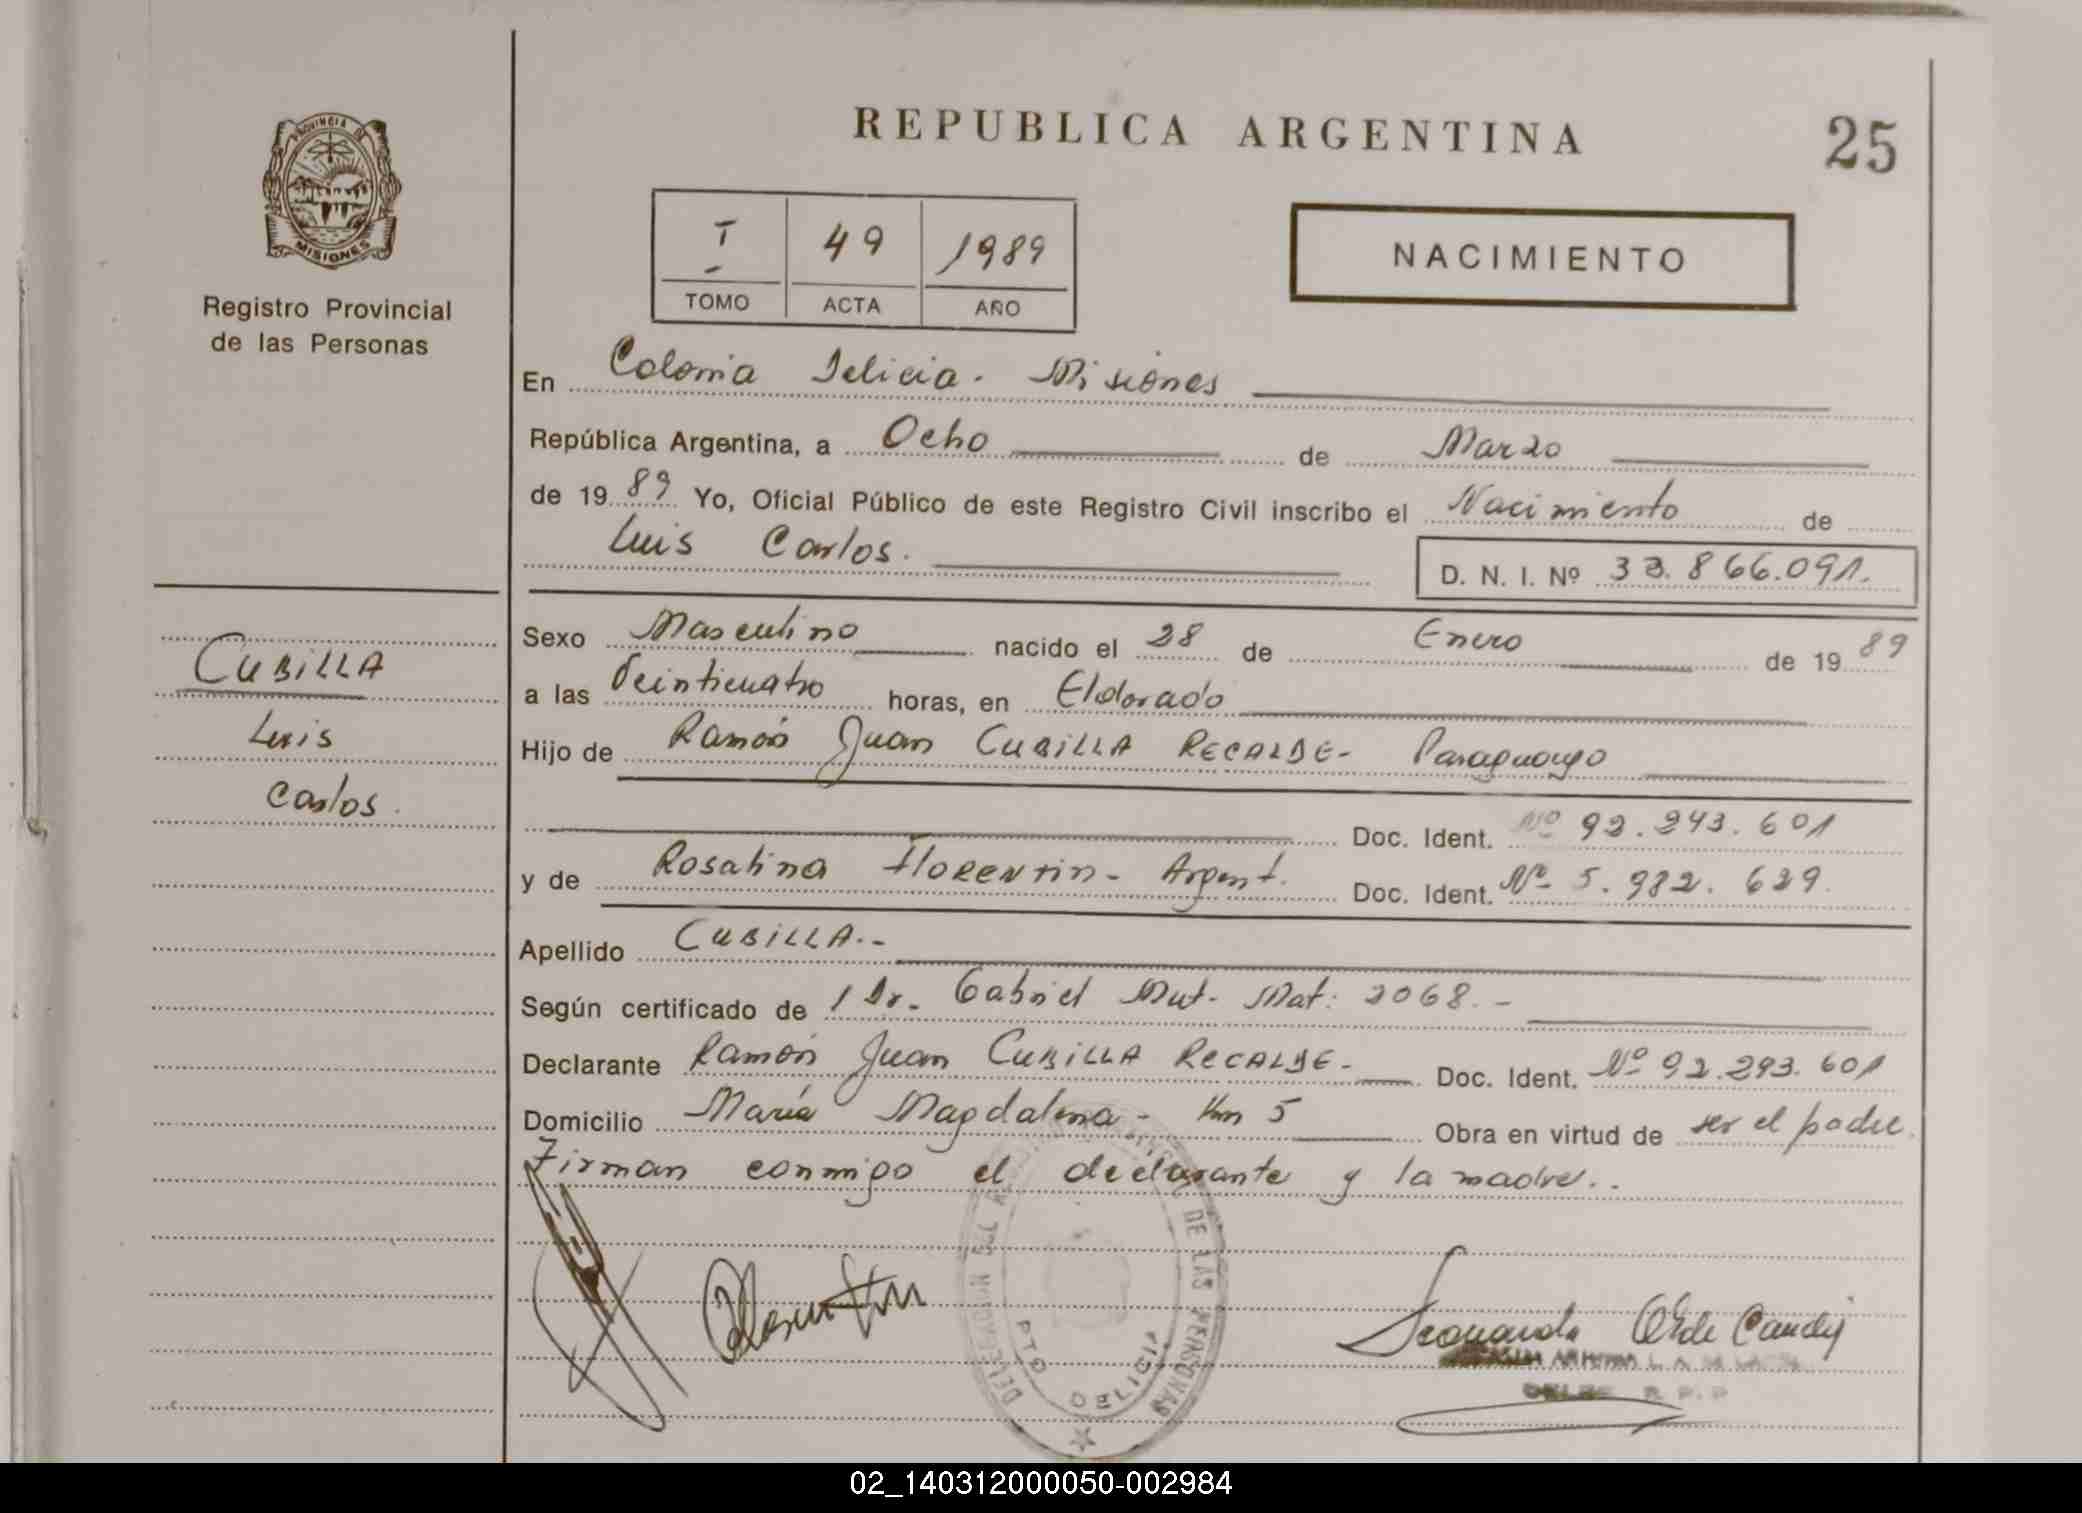 PROVINCIA DE
MISIONES
Registro Provincial
de las Personas
CUBILLA
Luis
Carlos.
REPUBLICA ARGENTINA
25
I 49 1989
TOMO ACTA AÑO
NACIMIENTO
En Colonia Delicia - Misiones
República Argentina, a Ocho de Marzo
de 1989 Yo, Oficial Público de este Registro Civil inscribo el Nacimiento de
Luis Carlos. D. N. I. Nº 33.866.091.
Sexo Masculino nacido el 28 de Enero de 1989
a las Veinticuatro horas, en Eldorado
Hijo de Ramón Juan CUBILLA RECALDE - Paraguayo
Doc. Ident. Nº 92.243.601
y de Rosalina FLORENTIN - Argent. Doc. Ident. Nº 5.982.629.
Apellido CUBILLA.-
Según certificado de 1 Dr. Gabriel Mut. Mat: 2068.-
Declarante Ramón Juan CUBILLA RECALDE - Doc. Ident. Nº 92.293.601
Domicilio María Magdalena - Km 5 Obra en virtud de ser el padre.
Firman conmigo el declarante y la madre..
DELEGACION DEL DE LAS PERSONAS
PTO DELICIA
DELEG. R. P. P
02_140312000050-002984